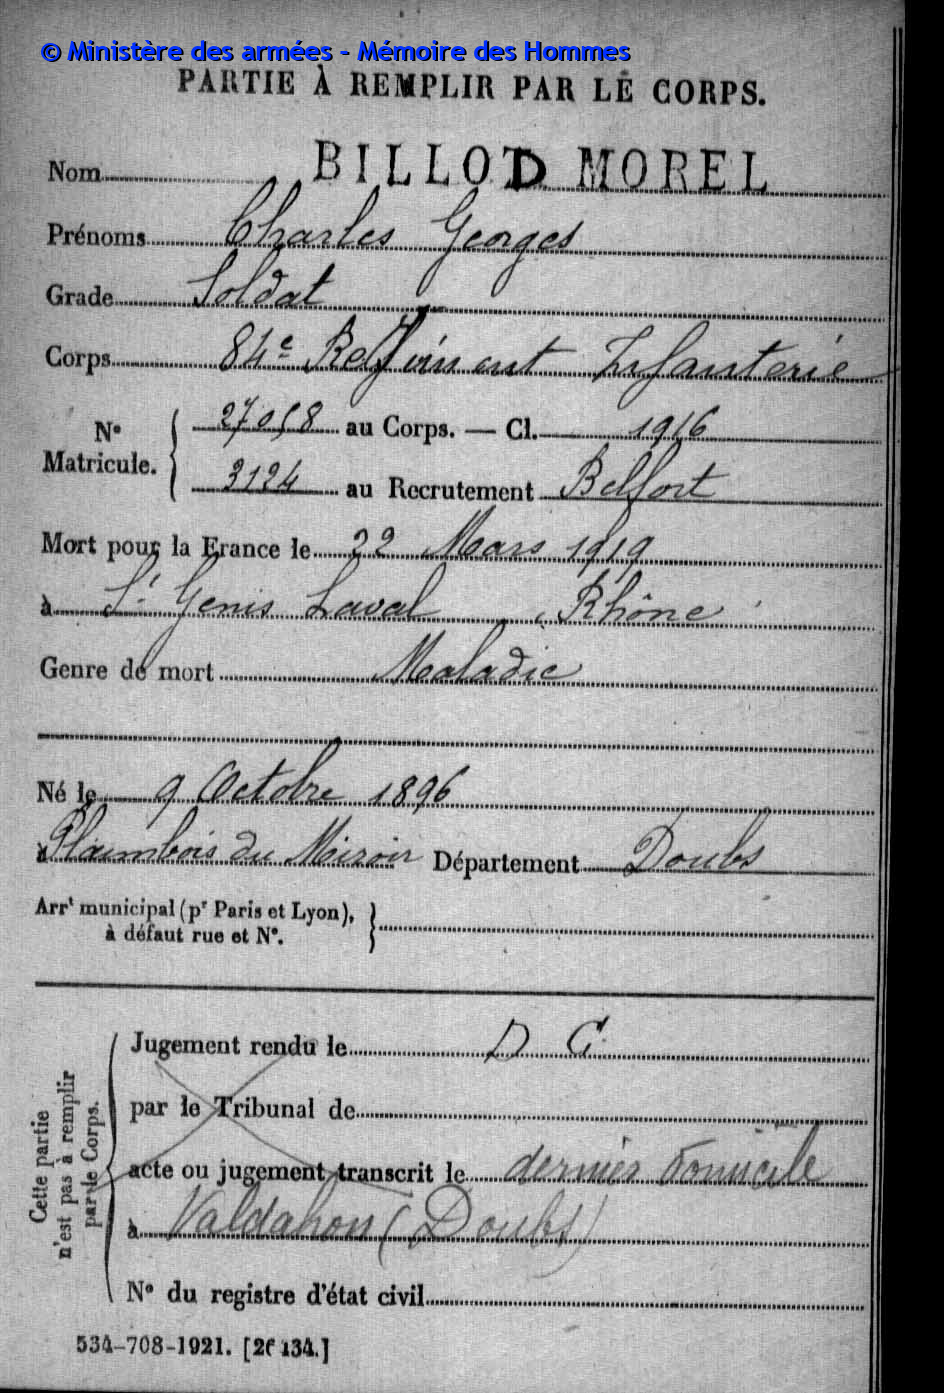 © Ministère des armées - Mémoire des Hommes
PARTIE À REMPLIR PAR LE CORPS.
Nom BILLOD MOREL
Prénoms Charles Georges
Grade Soldat
Corps 84e Régiment Infanterie
N° Matricule. { 27058 au Corps. — Cl. 1916
3124 au Recrutement Belfort
Mort pour la France le 22 Mars 1919
à St Genis Laval (Rhône)
Genre de mort Maladie
Né le 9 Octobre 1896
à Plaimbois du Miroir Département Doubs
Arrt municipal (pr Paris et Lyon), }
à défaut rue et N°.
Cette partie
n'est pas à remplir
par le Corps.
Jugement rendu le D C
par le Tribunal de
acte ou jugement transcrit le dernier domicile
à Valdahon (Doubs)
N° du registre d'état civil
534-708-1921. [26134.]